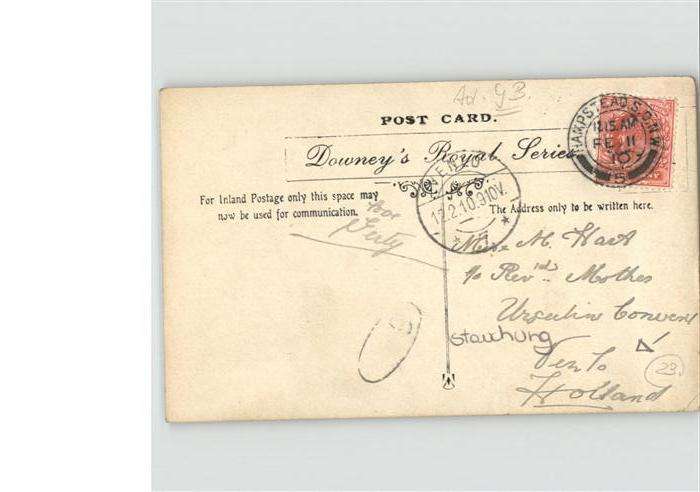 POST CARD.
Downey's Royal Series
For Inland Postage only this space may
now be used for communication.
The Address only to be written here.
HAMPSTEAD S.O. N.W
11.15 AM
FE 11
10
VENLO
12.2.10.9-10V.
Miss M. Hart
c/o Revd Mother
Ursuline Convent
Venlo
Holland
23.